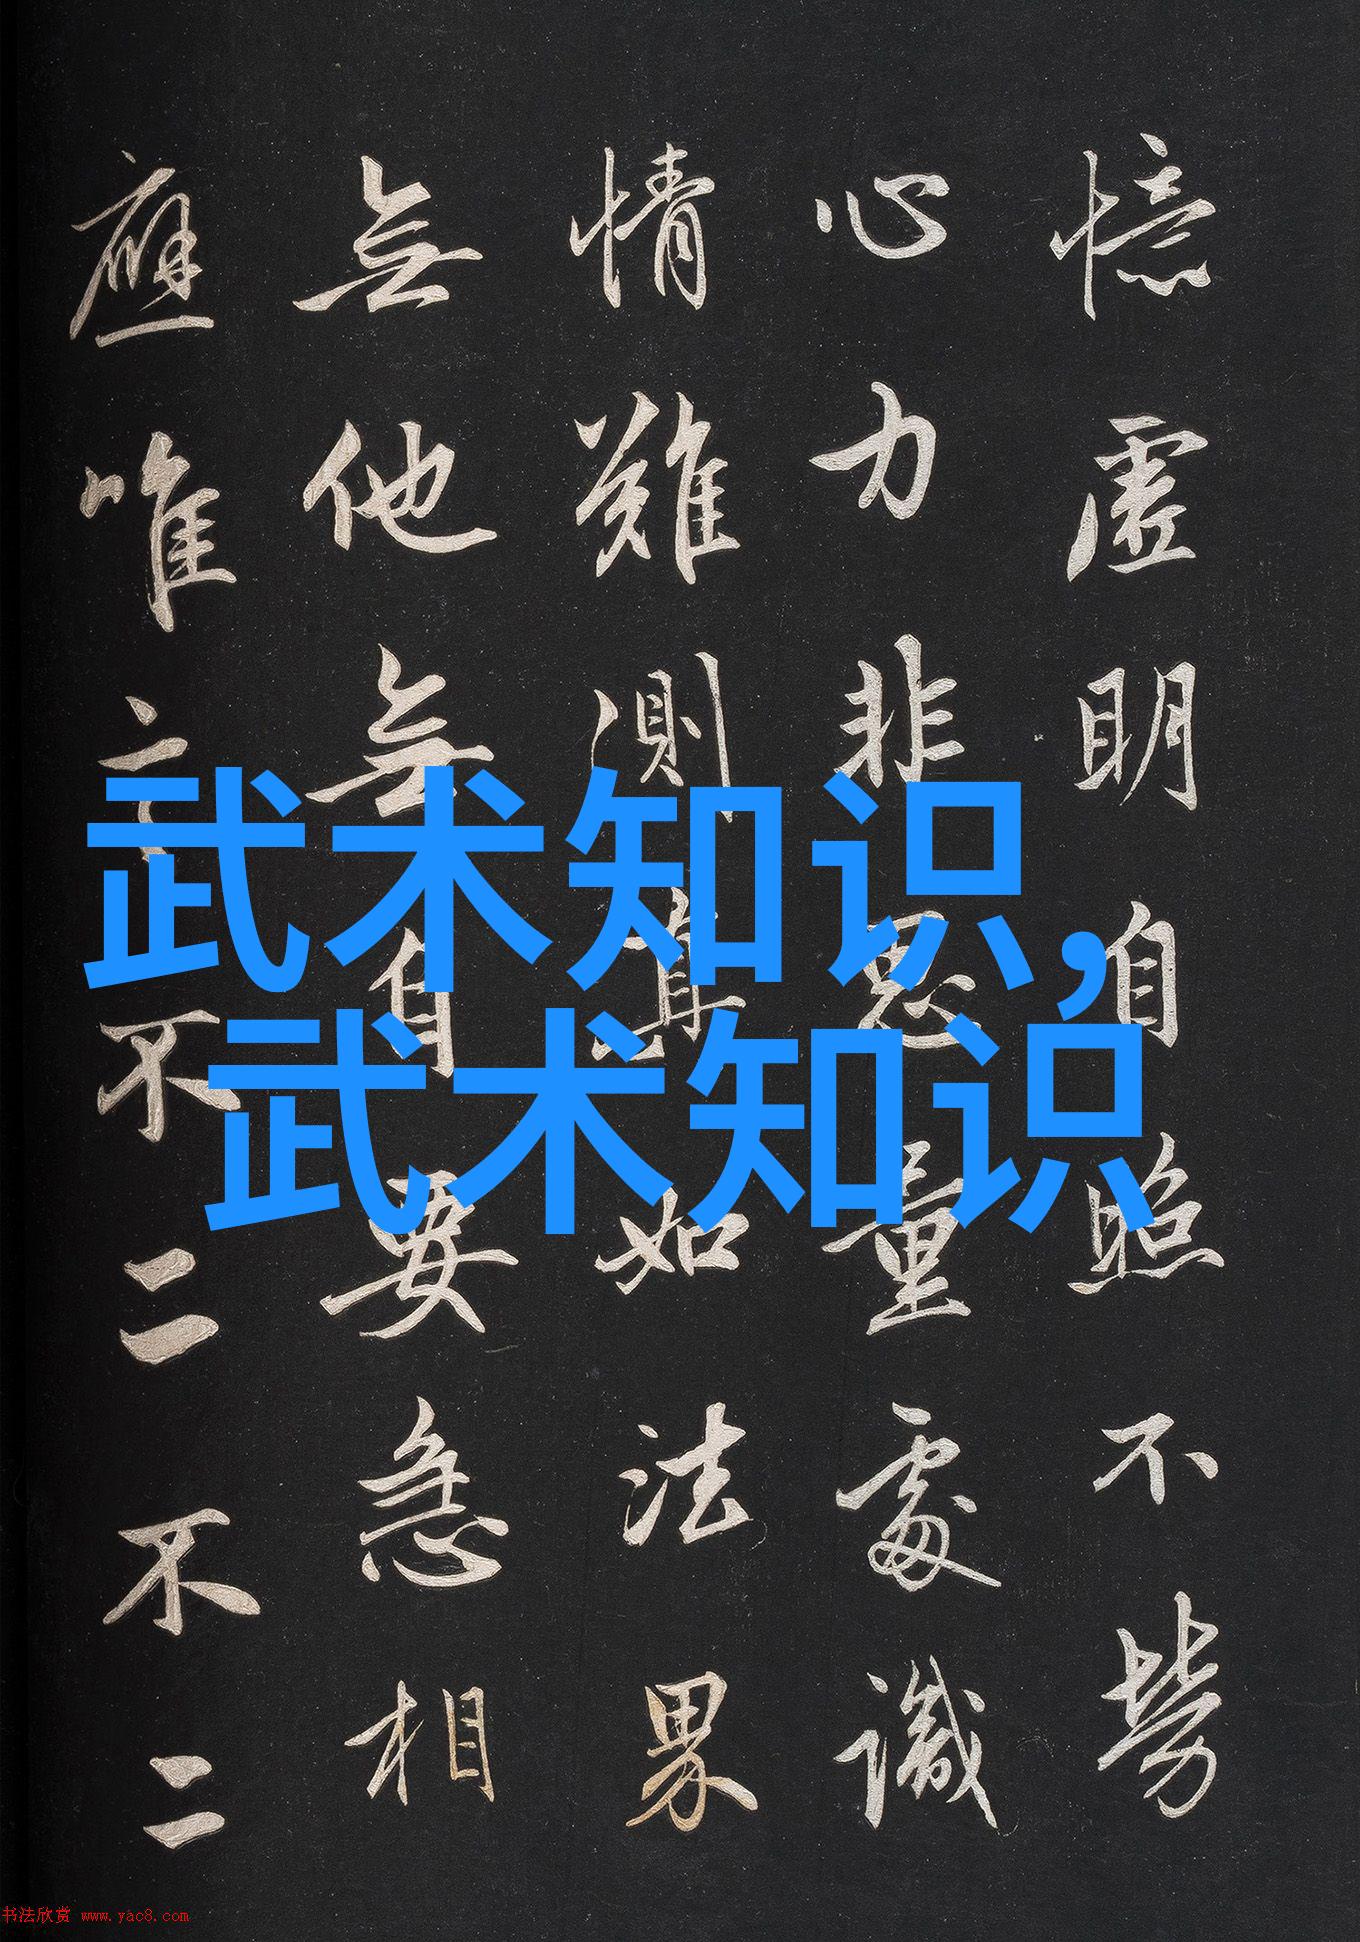 憶虛明自照不勞
心力非思量處識
情難測真如法界
無他無自要急相
應唯言不二不二
武术知识,
武术知识
书法欣赏 www.yac8.com